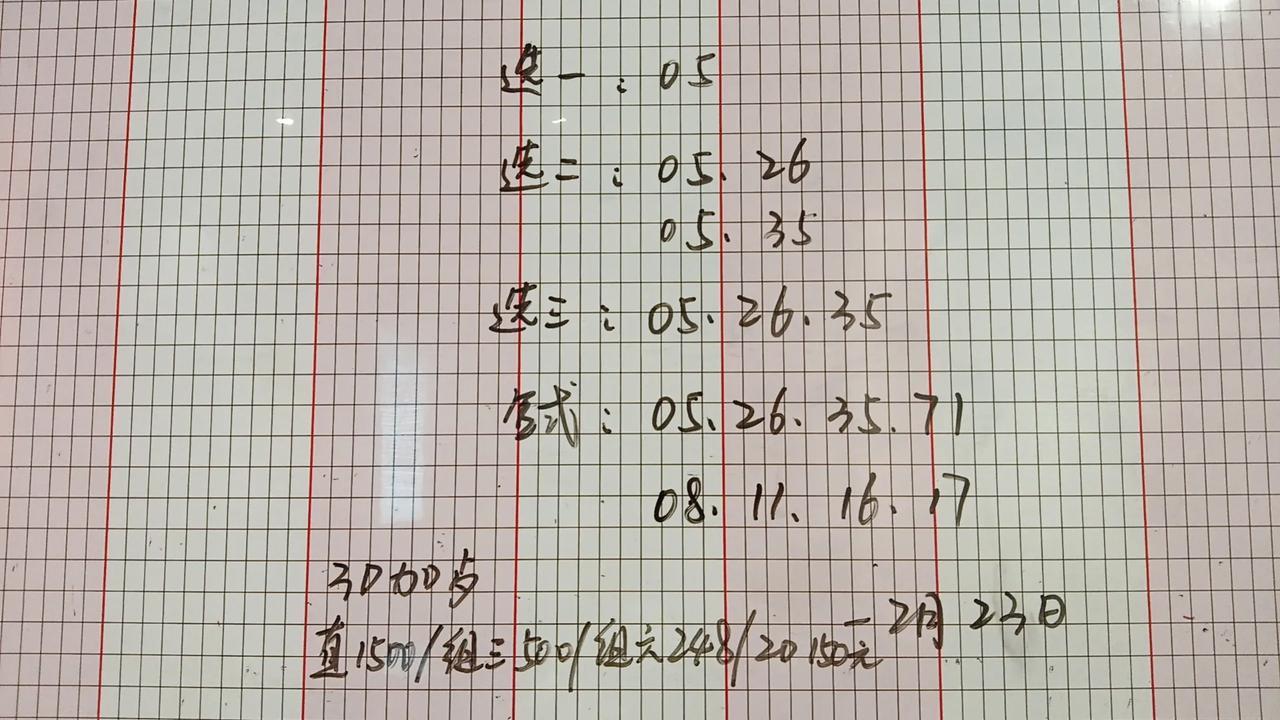 选一：05
选二：05. 26
05. 35
选三：05. 26. 35
复式：05. 26. 35. 71
08. 11. 16. 17
3D加白
直1500/组三500/组六248/2D 150元
-2月23日